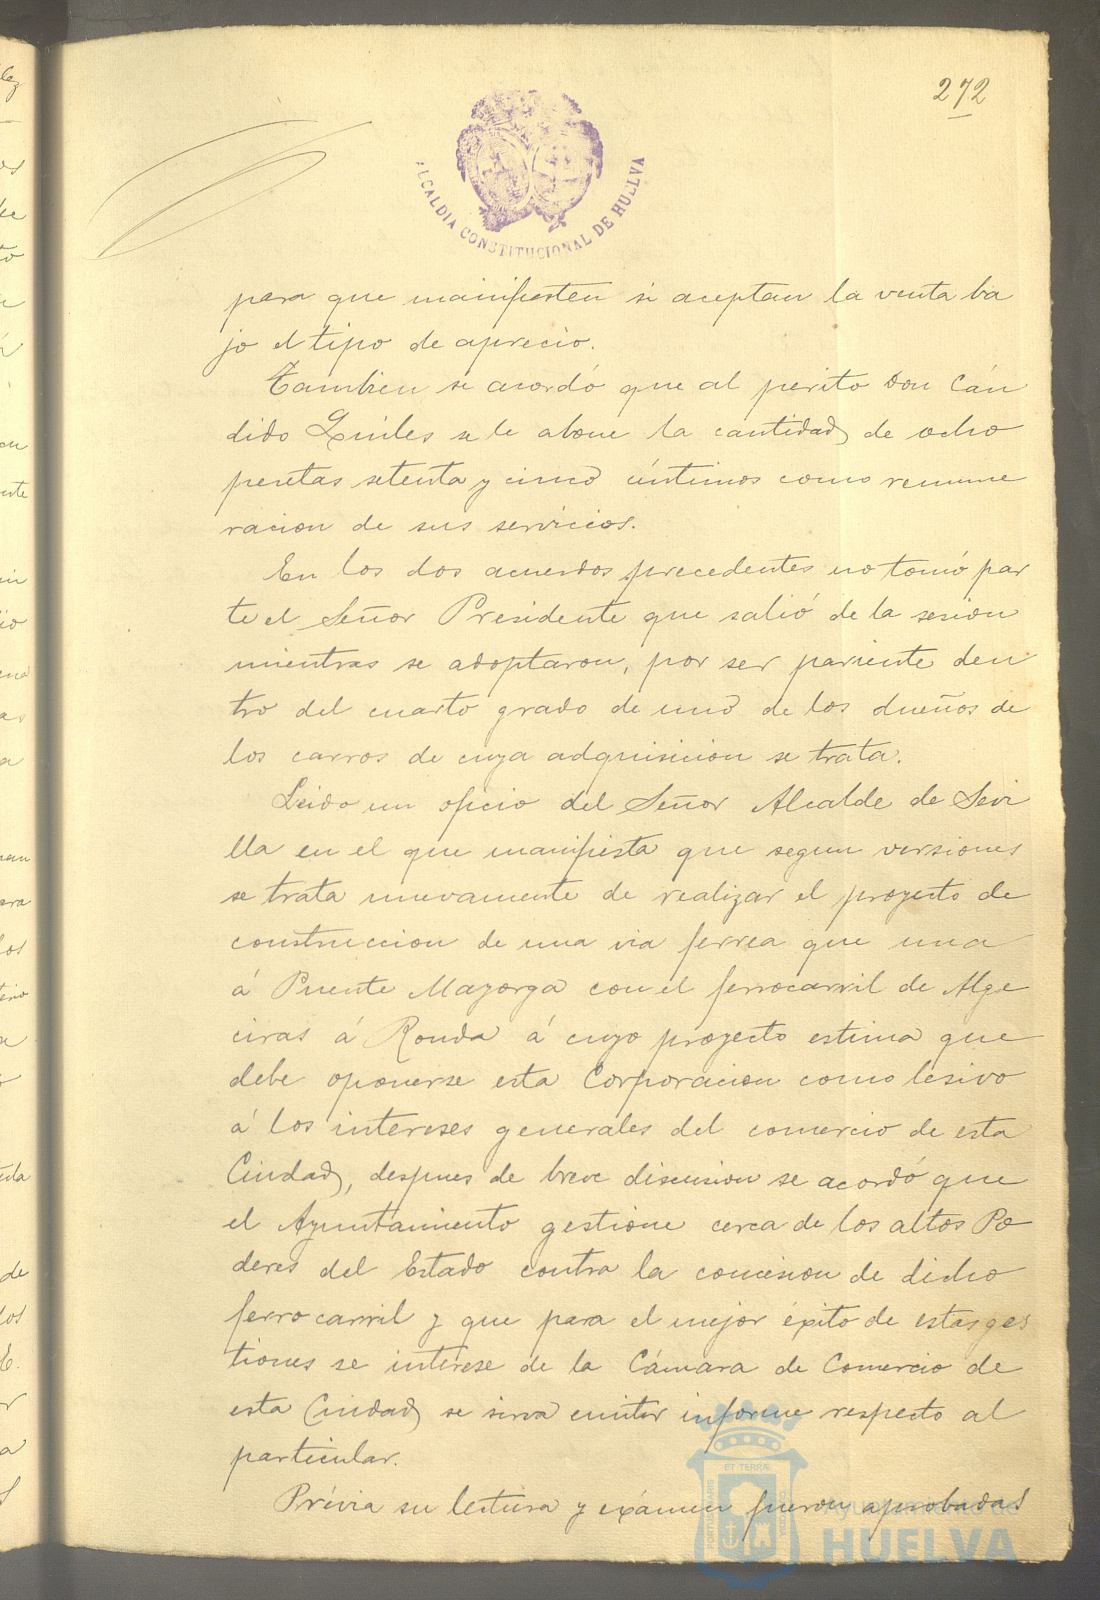 272
ALCALDIA CONSTITUCIONAL DE HUELVA
para que manifiesten si aceptan la venta ba
jo el tipo de aprecio.
Tambien se acordó que al perito Don Cán
dido Quiles se le abone la cantidad de ocho
pesetas setenta y cinco céntimos como remune
racion de sus servicios.
En los dos acuerdos precedentes no tomó par
te el Señor Presidente que salió de la sesion
mientras se adoptaron, por ser pariente den
tro del cuarto grado de uno de los dueños de
los carros de cuya adquisicion se trata.
Leido un oficio del Señor Alcalde de Sevi
lla en el que manifiesta que segun versiones
se trata nuevamente de realizar el proyecto de
construccion de una via ferrea que una
á Puente Mayorga con el ferrocarril de Alge
ciras á Ronda á cuyo proyecto estima que
debe oponerse esta Corporacion como lesivo
á los intereses generales del comercio de esta
Ciudad, despues de breve discusion se acordó que
el Ayuntamiento gestione cerca de los altos Po
deres del Estado contra la concesion de dicho
ferrocarril y que para el mejor éxito de estas ges
tiones se interese de la Cámara de Comercio de
esta Ciudad se sirva emitir informe respecto al
particular.
Prévia su lectura y exámen fueron aprobadas
ET TERRÆ
Ayuntamiento de
HUELVA